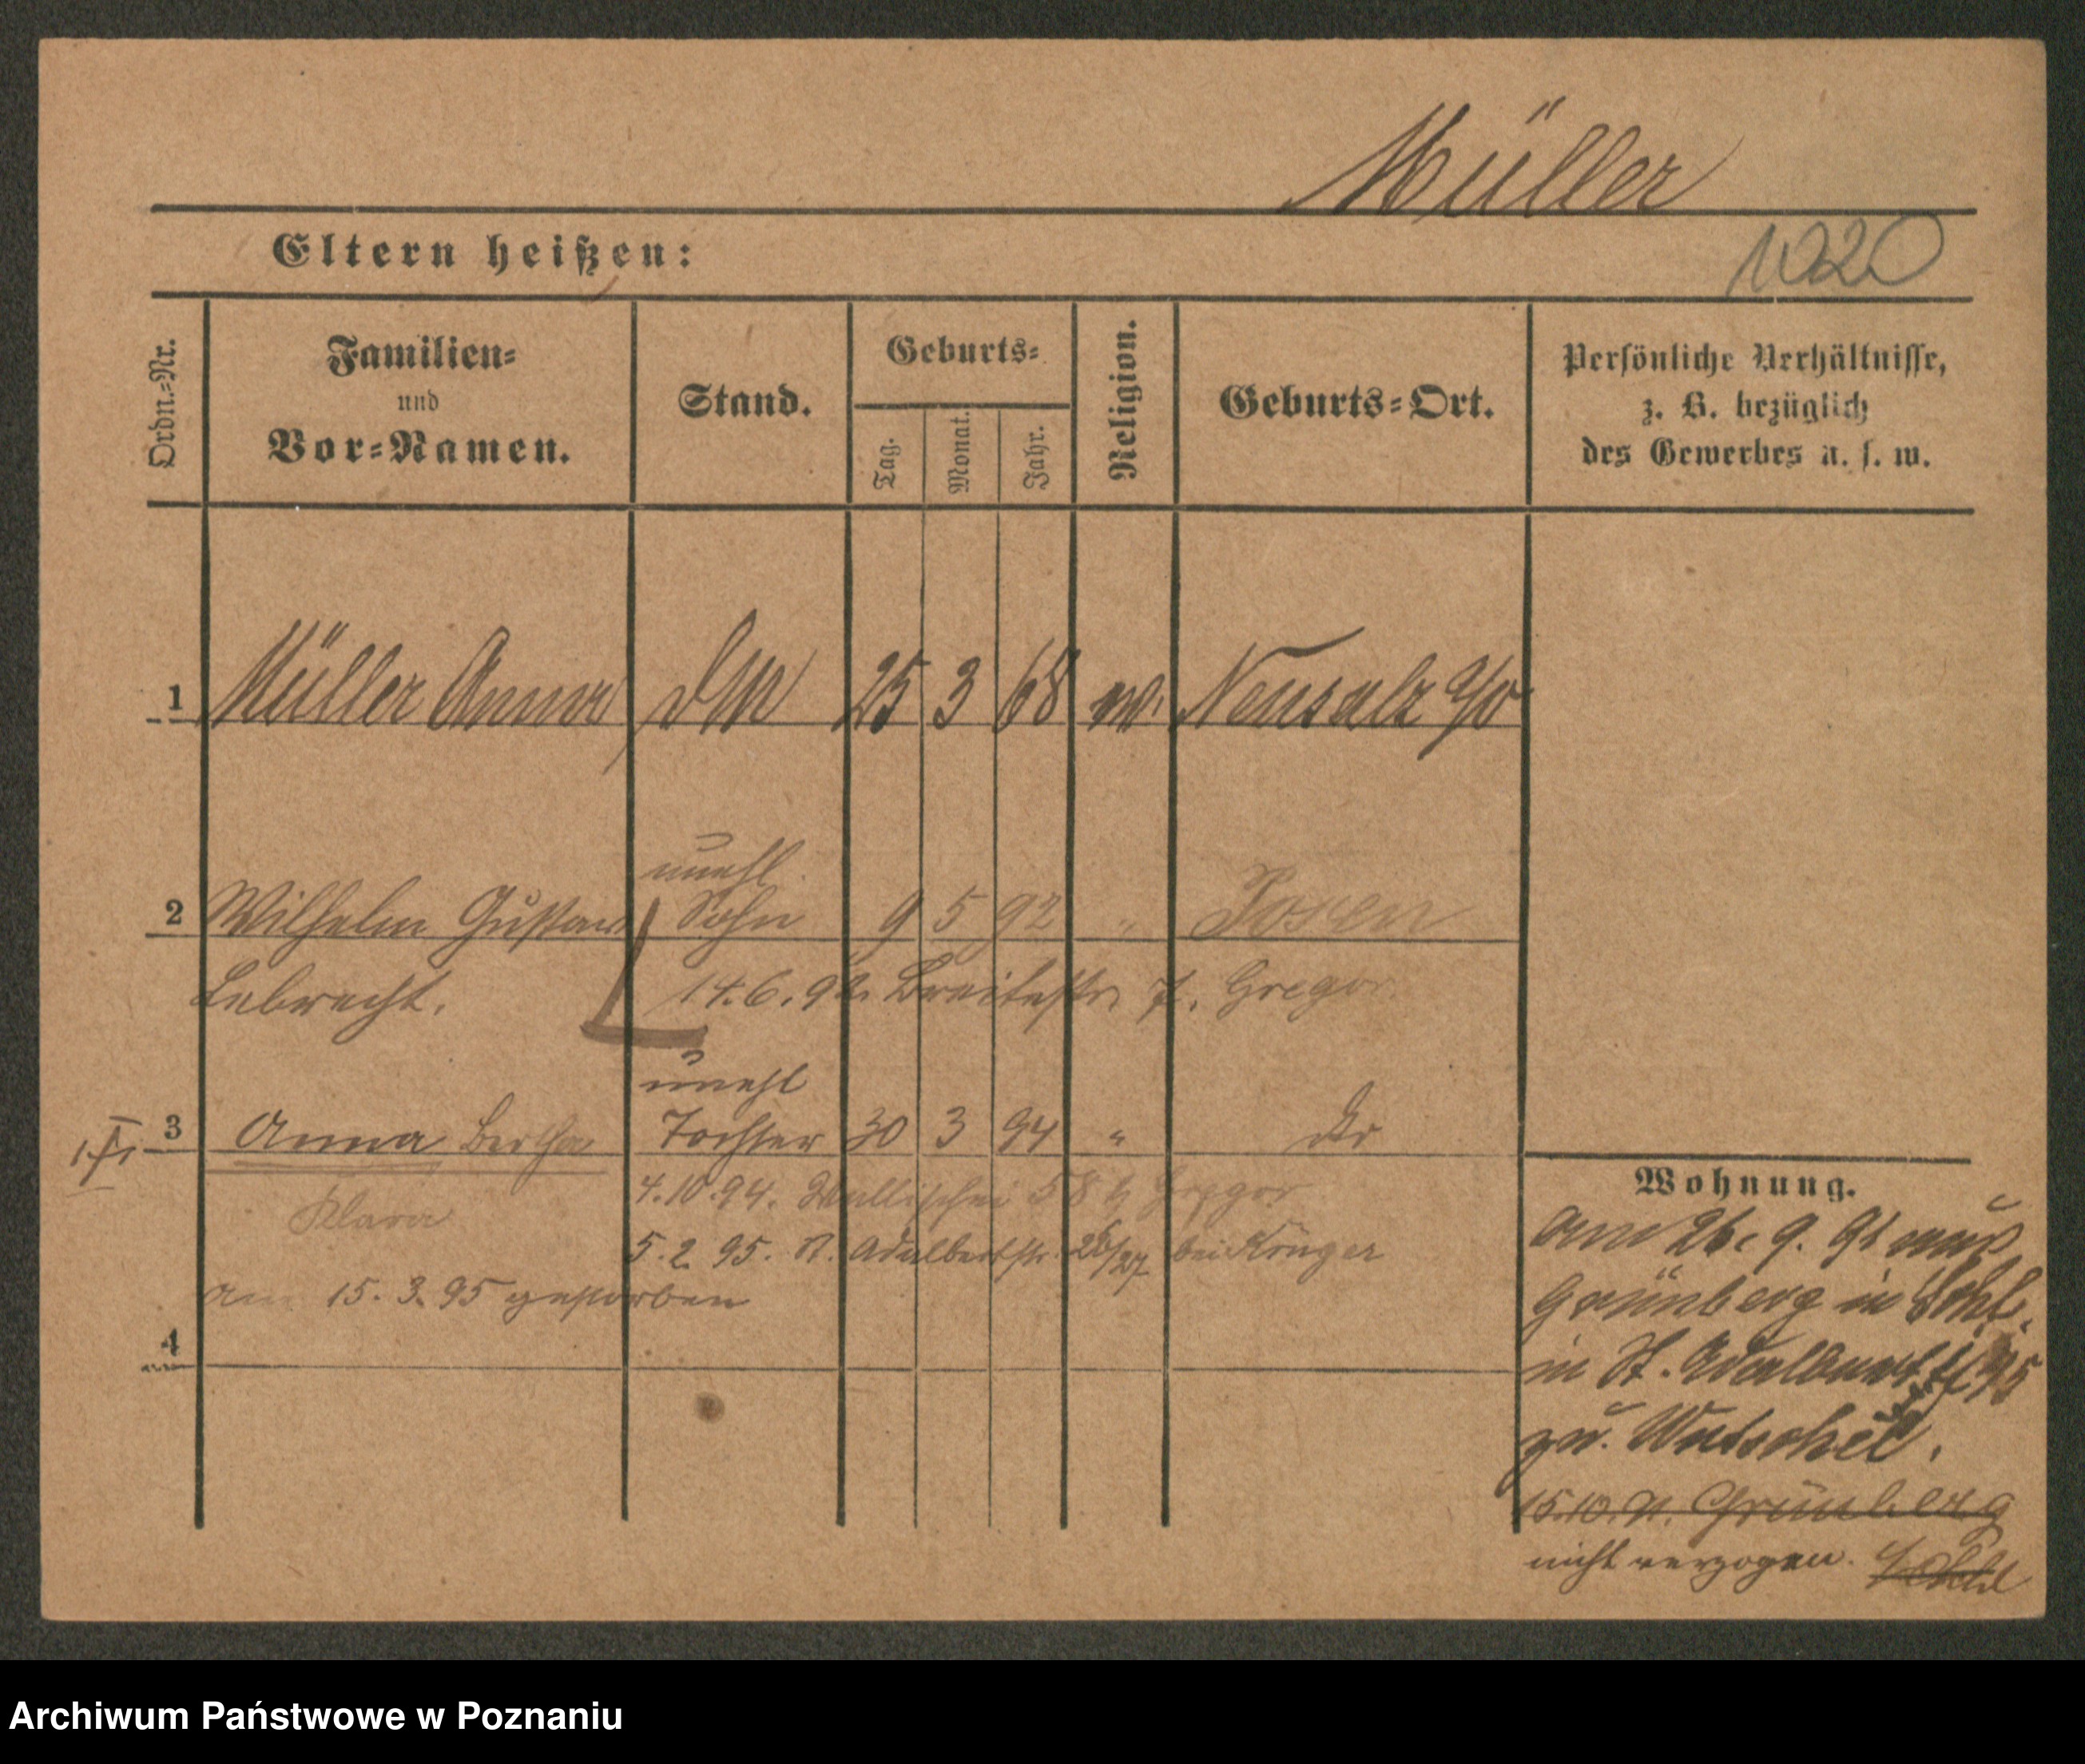 Müller
Eltern heißen:
1020
Ordn.-Nr.
Familien-
und
Vor-Namen.
Stand.
Geburts-
Tag.
Monat.
Jahr.
Religion.
Geburts-Ort.
Persönliche Verhältnisse,
z. B. bezüglich
des Gewerbes u. s. w.
1 Müller Anna 25 3 68 Neusalz a/o
unehl.
2 Wilhelm Gustav Sohn 9 5 92 " Posen
Lebrecht. 14.6.92. Breitestr. 7. Gregor.
unehl
3 Anna Bertha Tochter 30 3 94 " do
Klara 4.10.94. Wallischei 58 b Gregor
5.2.95. St. Adalbertstr. 26/27 bei Krüger
am 15.3.95 gestorben
4
Wohnung.
am 26. 9. 91 aus
Grünberg in Schl.
in St. Adalbert
zu. Wutschke.
15.10.91. Grünberg
nicht verzogen.
Archiwum Państwowe w Poznaniu